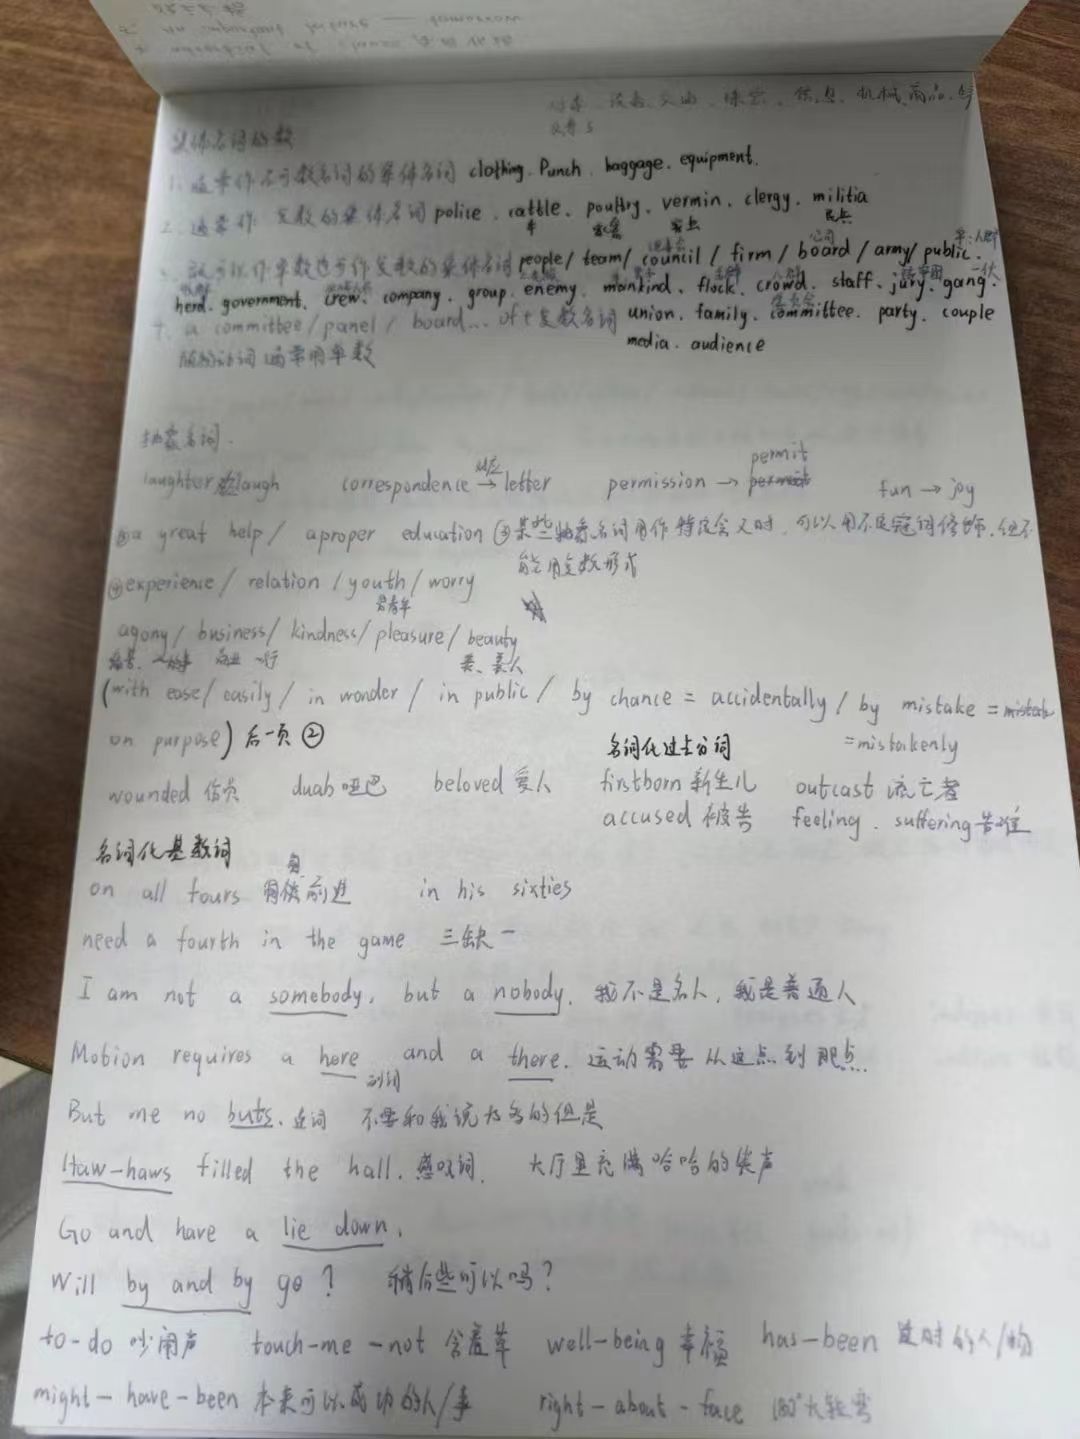 5. An important future — tomorrow
集体名词的数
1. 通常作不可数名词的集体名词 clothing. Punch. baggage. equipment.
2. 通常作 复数的集体名词 police. cattle. poultry. vermin. clergy. militia
牛 家禽 害虫 民兵
既可作单数也可作复数的集体名词 people/ team/ council / firm / board / army/ public.
公司
herd. government. crew. company. group. enemy. mankind. flock. crowd. staff. jury. gang.
a committee/ panel / board... of + 复数名词 union. family. committee. party. couple
委员会
通常用单数 media. audience
抽象名词.
laughter laugh correspondence → letter permission → permit fun → joy
对应
a great help/ aproper education ③某些抽象名词用作特定含义时, 可以用不定冠词修饰. 但不
能用复数形式
④experience/ relation / youth/ worry
agony/ business/ kindness/ pleasure/ beauty
美、美人
(with ease/ easily / in wonder / in public / by chance = accidentally / by mistake =
on purpose) 后一页② =mistakenly
名词化过去分词
wounded 伤员 duab 哑巴 beloved 爱人 firstborn 新生儿 outcast 流亡者
accused 被告 feeling. suffering 苦难
名词化基数词
on all fours 前进 in his sixties
need a fourth in the game 三缺一
I am not a somebody, but a nobody. 我不是名人, 我是普通人
Motion requires a here and a there. 运动需要从这点到那点.
副词
But me no buts. 连词 不要和我说太多的但是
Haw-haws filled the hall. 感叹词. 大厅里充满哈哈的笑声
Go and have a lie down.
Will by and by go? 稍后些可以吗?
to-do 吵闹声 touch-me-not 含羞草 well-being 幸福 has-been 过时的人/物
might-have-been 本来可以成功的人/事 right-about-face 180°大转弯